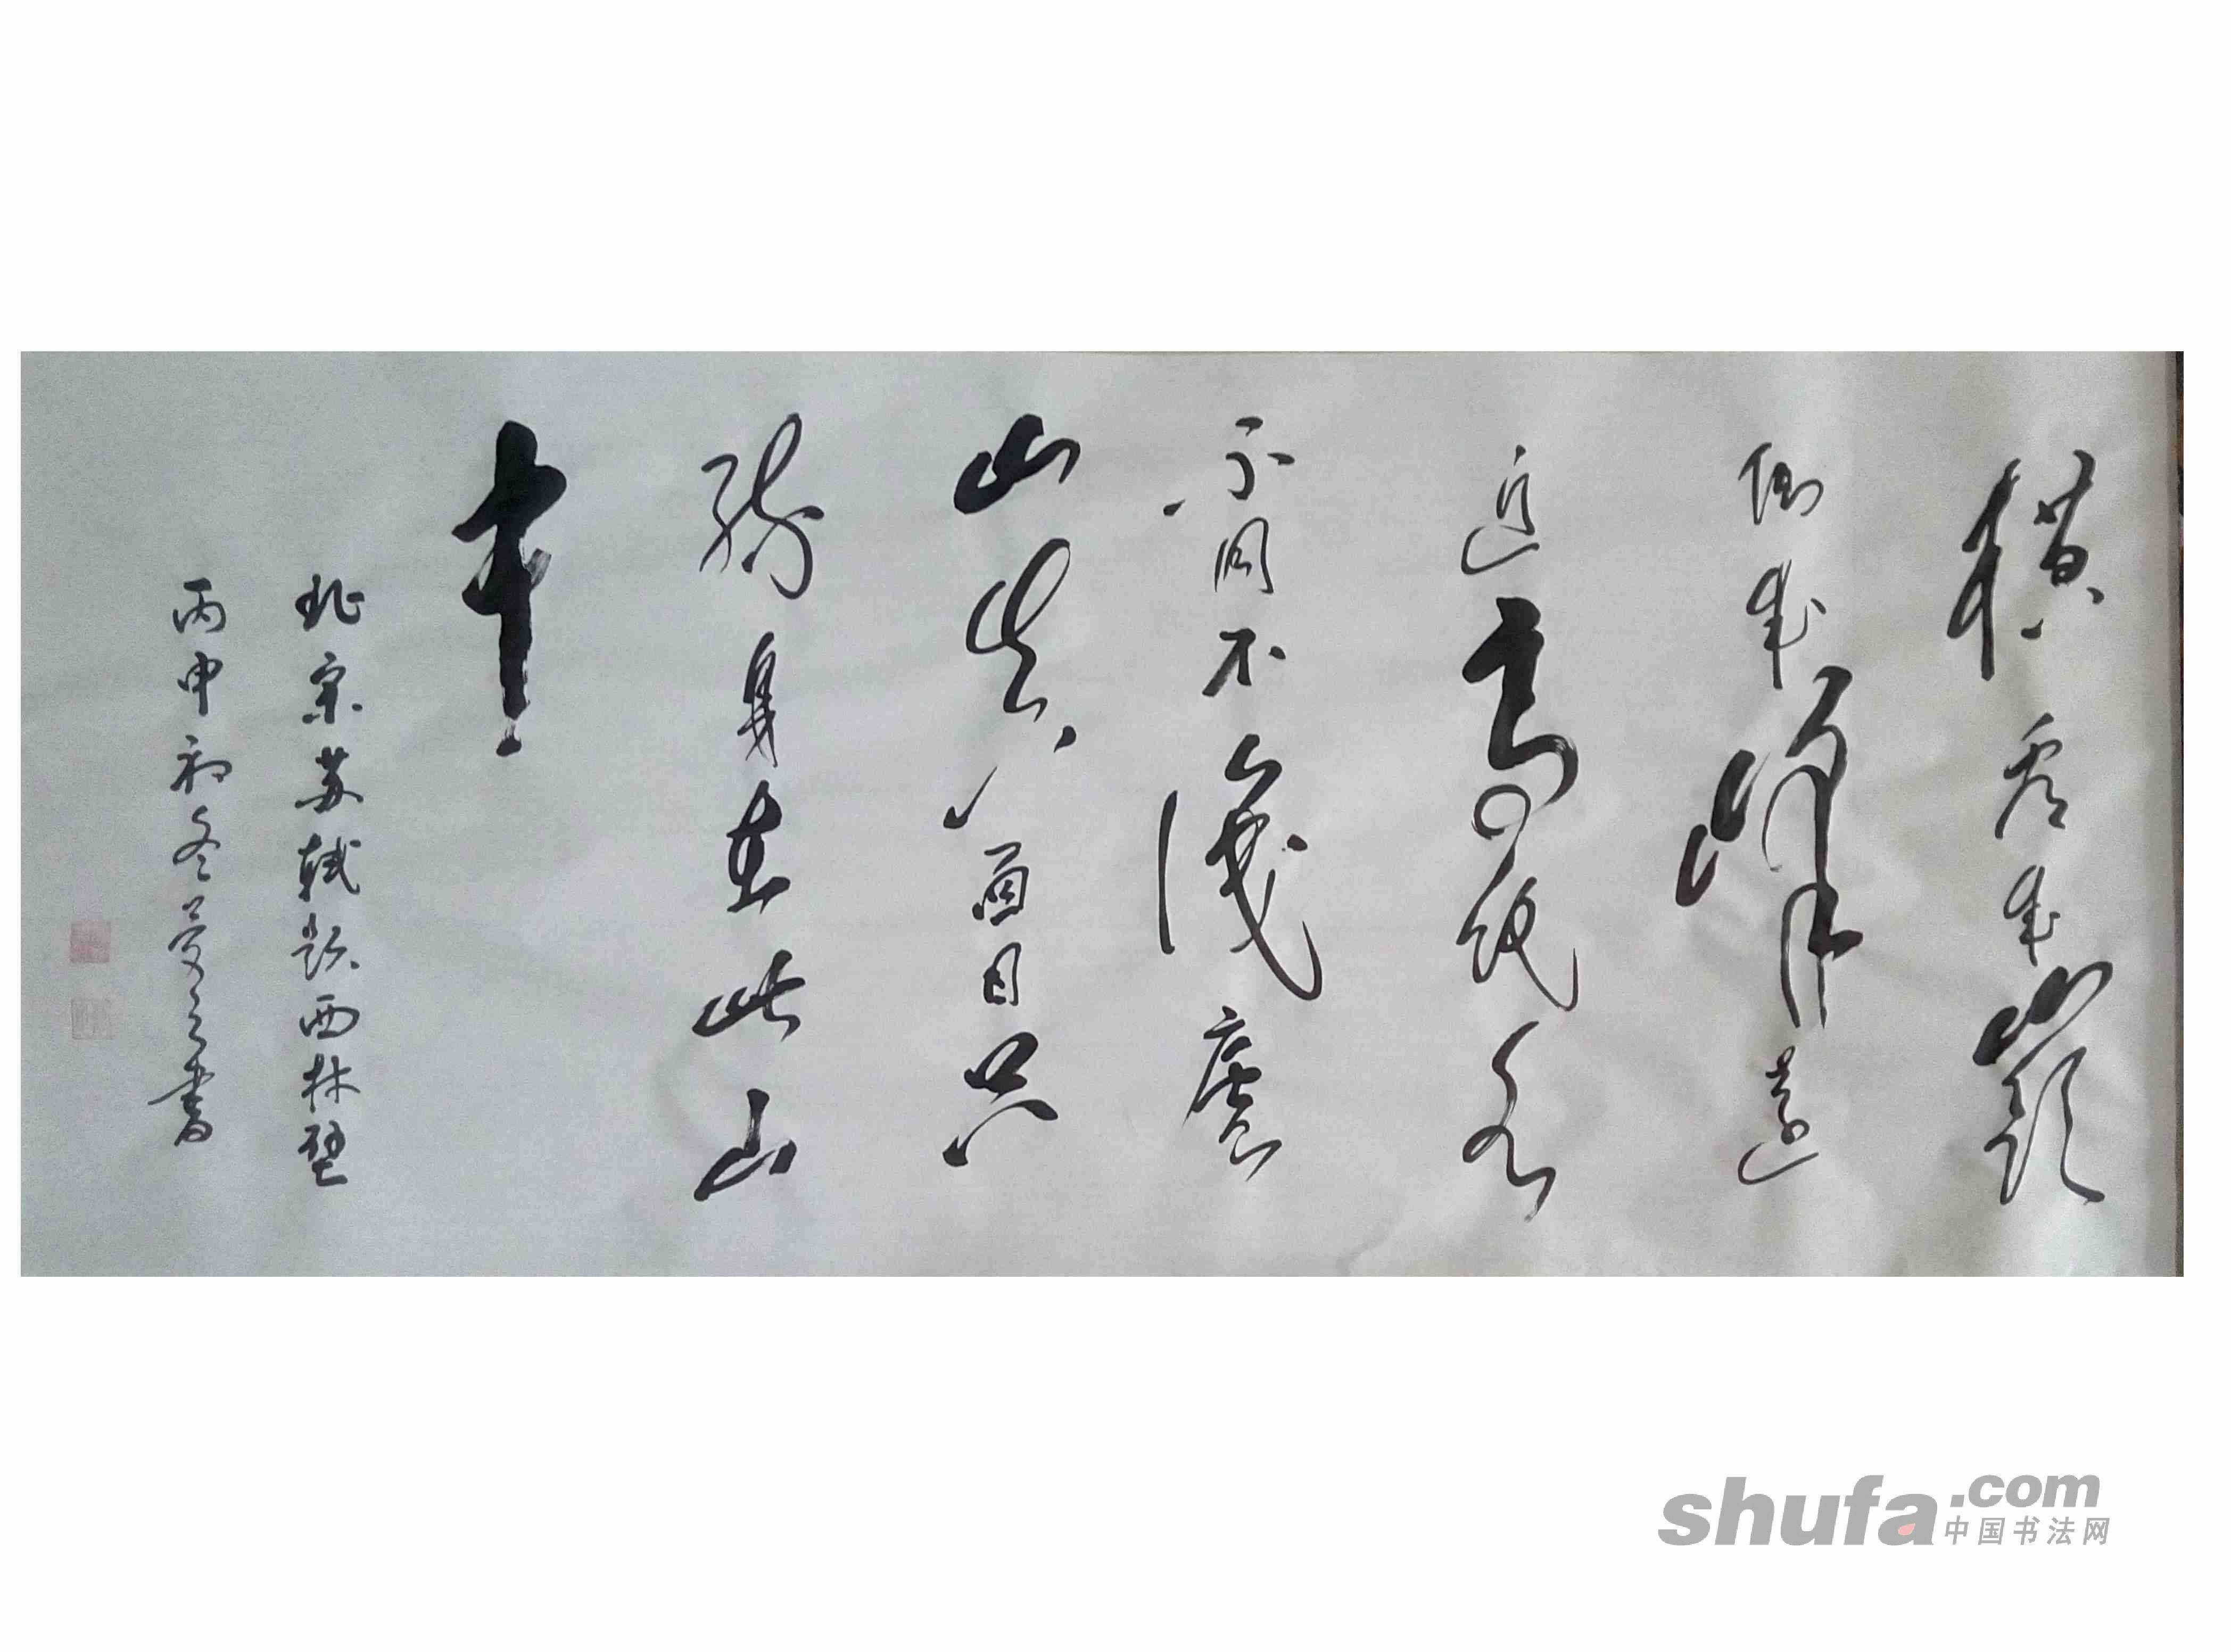 横看成岭
侧成峰远
近高低各
不同不识庐
山真面目只
缘身在此山
中
北宋苏轼题西林壁
丙申初冬
书
shufa.com
中国书法网